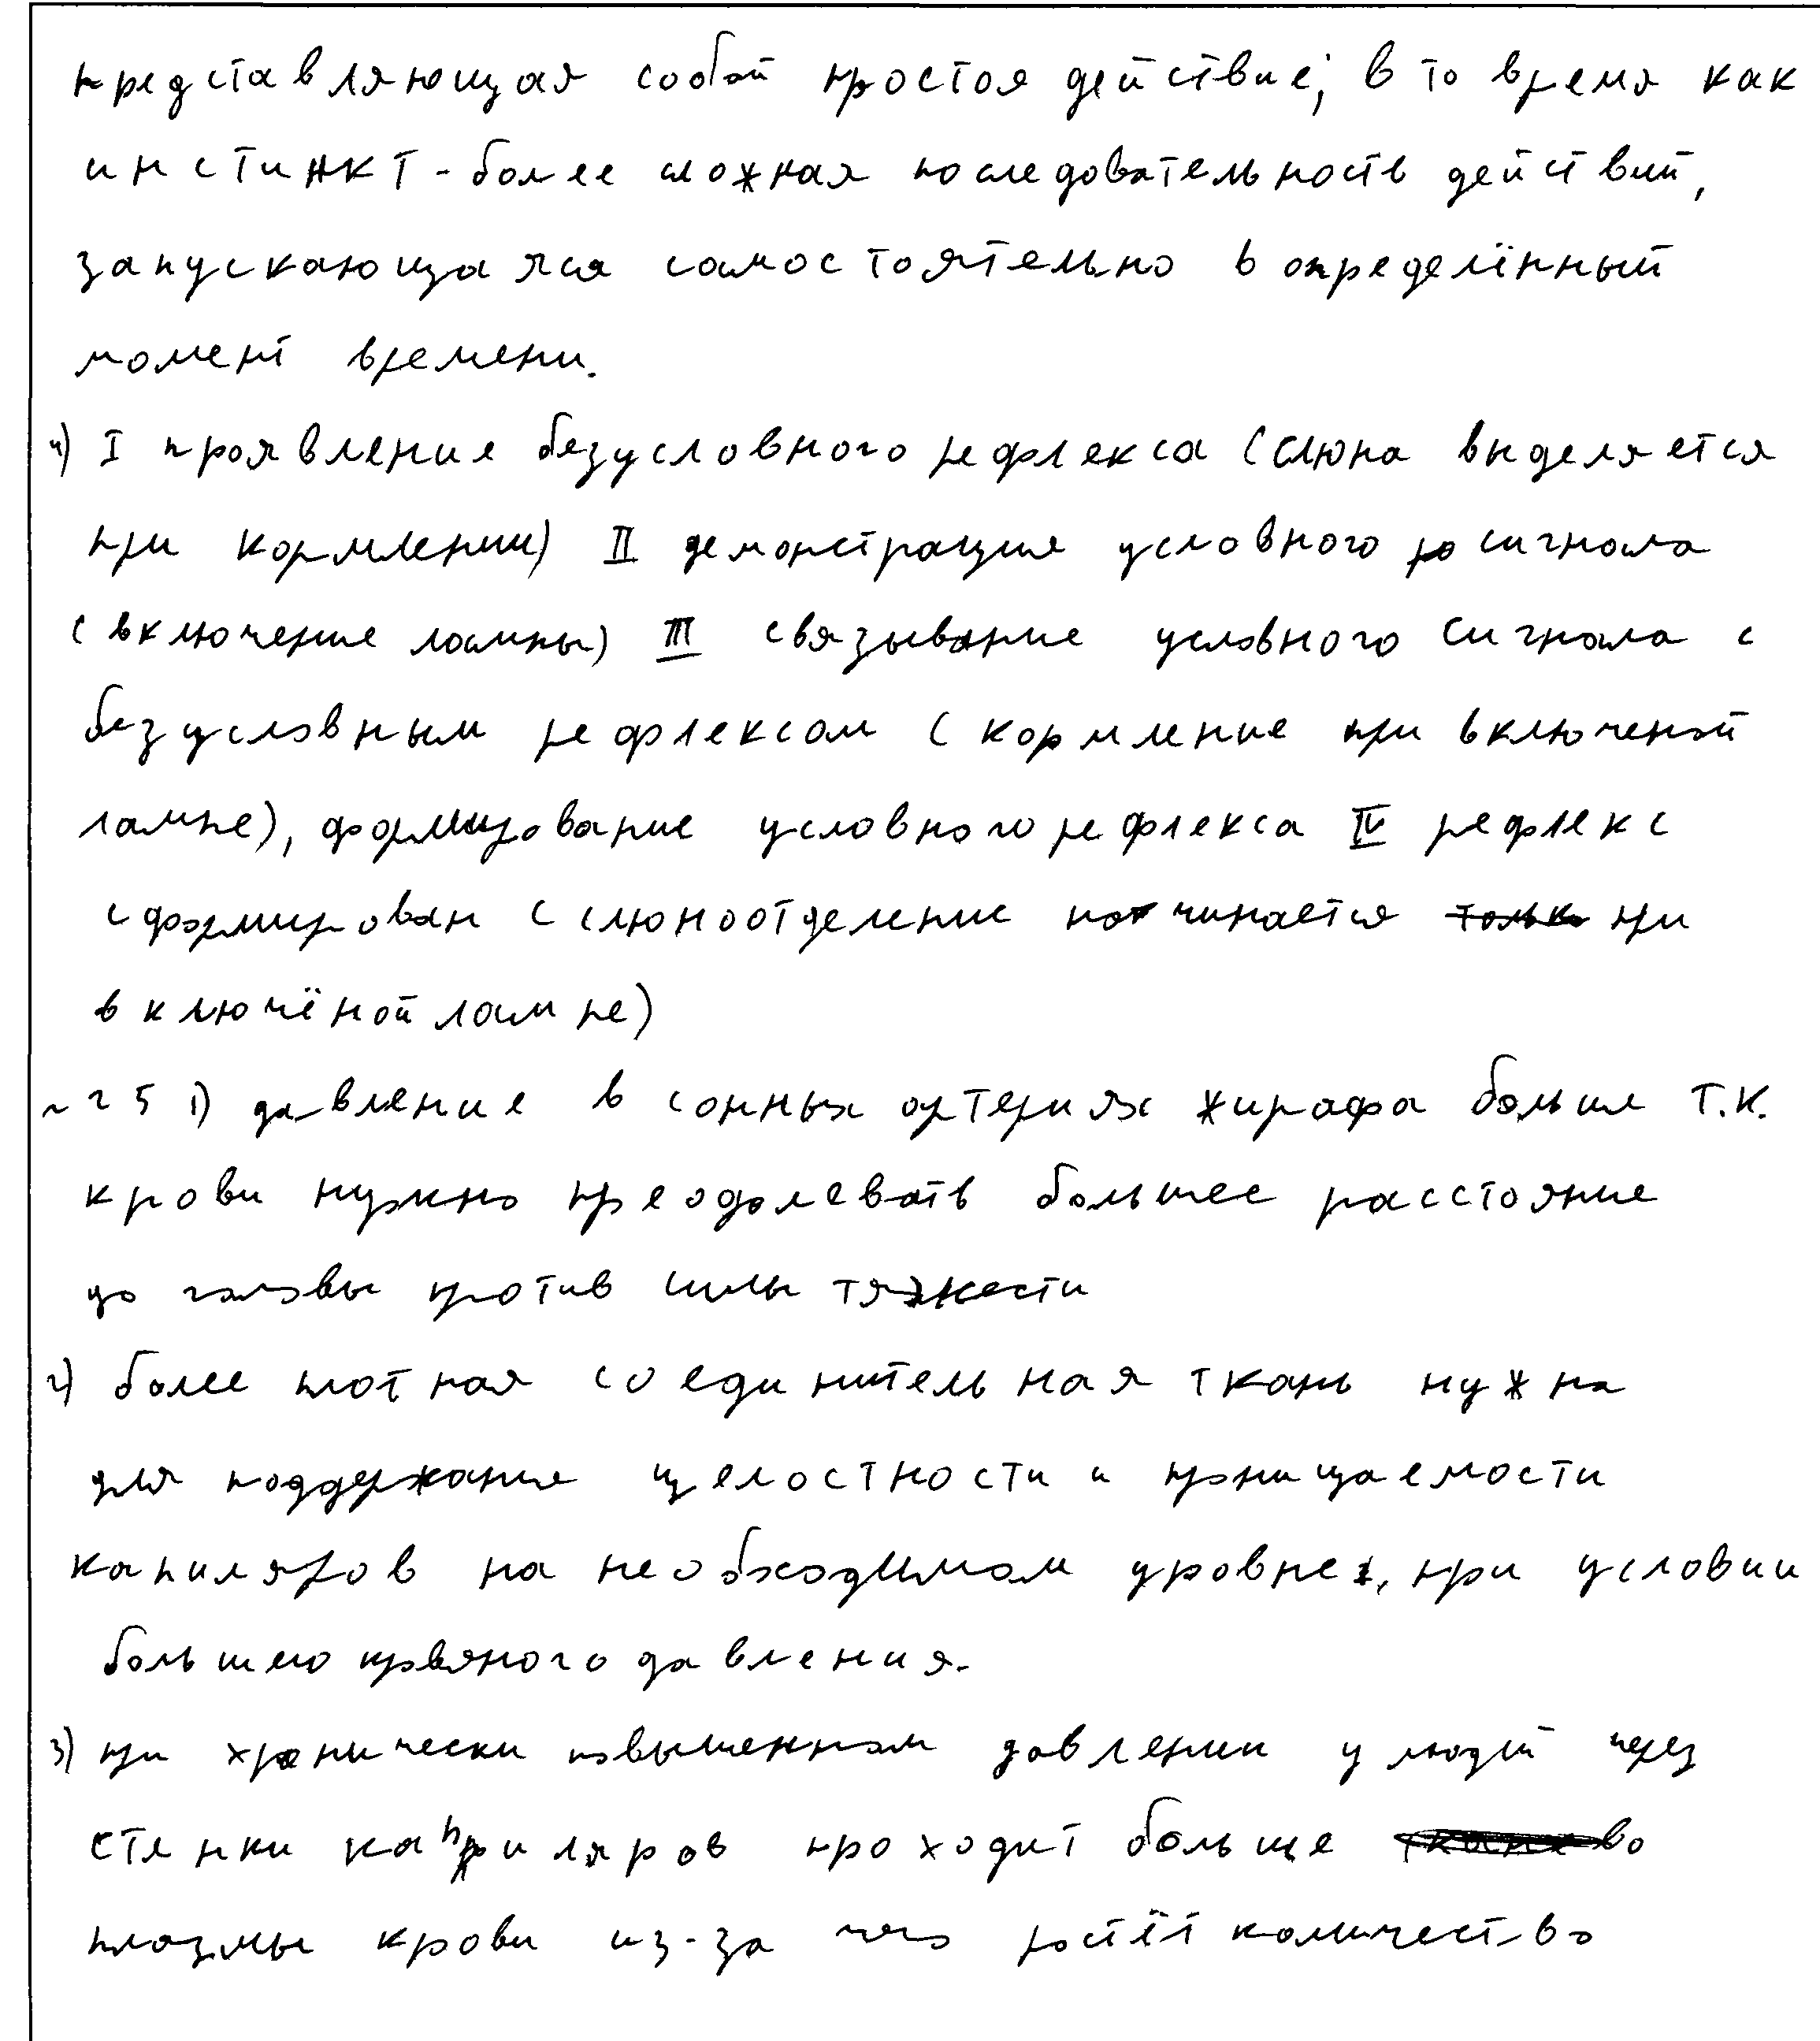 представляющая собой простоя действие; в то время как
инстинкт - более сложная последовательность действий,
запускающаяся самостоятельно в определённый
момент времени.
4) I проявление безусловного рефлекса (слюна выделяется
при кормлении) II демонстрация условного сигнала
(включение лампы) III связывание условного сигнала с
безусловным рефлексом (кормление при включеной
лампе), формирование условного рефлекса IV рефлекс
сформирован (слюноотделение начинается при
включёной лампе)
~25 1) давление в сонных артериях жирафа больше т.к.
крови нужно преодолевать большее расстояние
до головы против силы тяжести
2) более плотная соединительная ткань нужна
для поддержания целостности и проницаемости
капиляров на необходимом уровне, при условии
большего кровяного давления.
3) при хронически повышенном давлении у людей через
стенки капиляров проходит больше
плазмы крови из-за чего ростёт количество